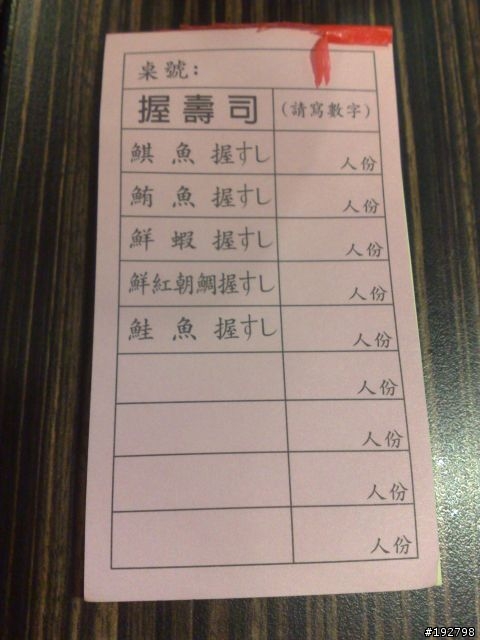 桌號:
握壽司 (請寫數字)
鯕魚握すし 人份
鮪魚握すし 人份
鮮蝦握すし 人份
鮮紅朝鯛握すし 人份
鮭魚握すし 人份
人份
人份
人份
人份
#192798